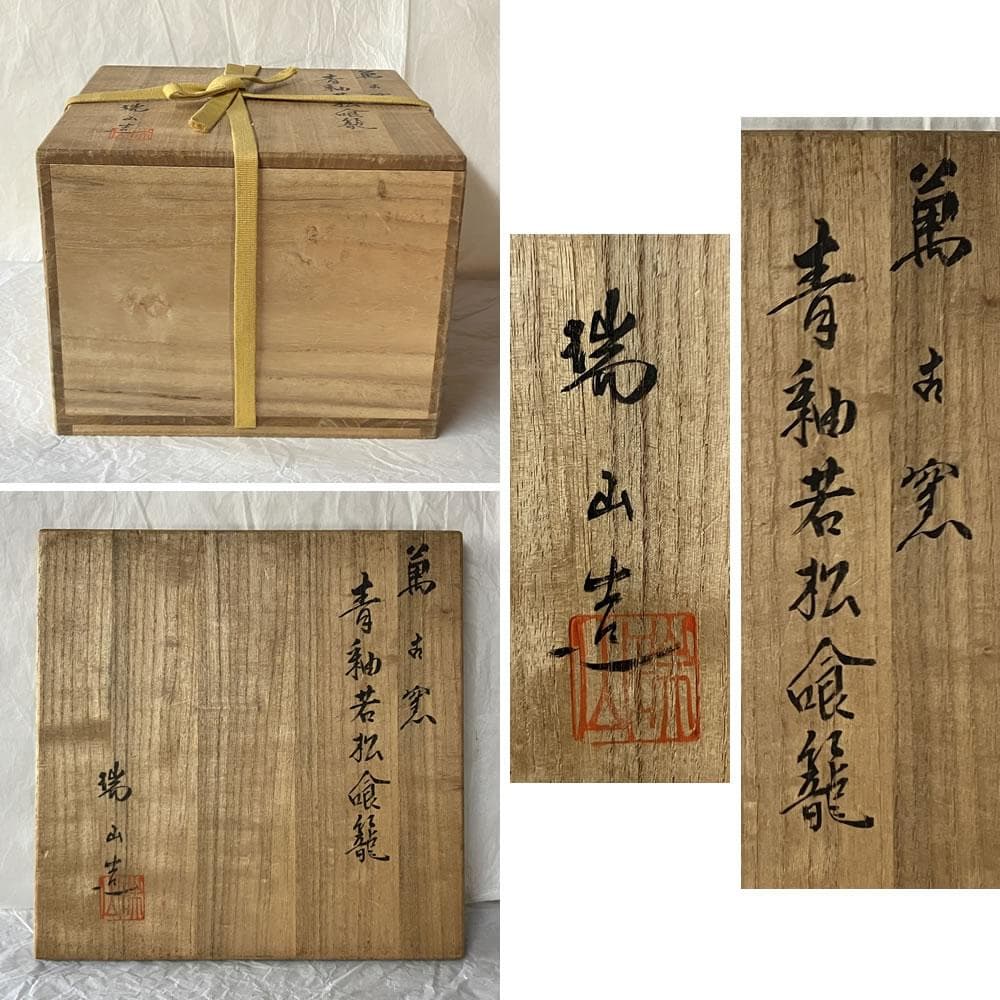 萬古窯
青釉若松喰籠
瑞山造
萬古窯
青釉若松喰籠
瑞山造
瑞山造
萬古窯
青釉若松喰籠